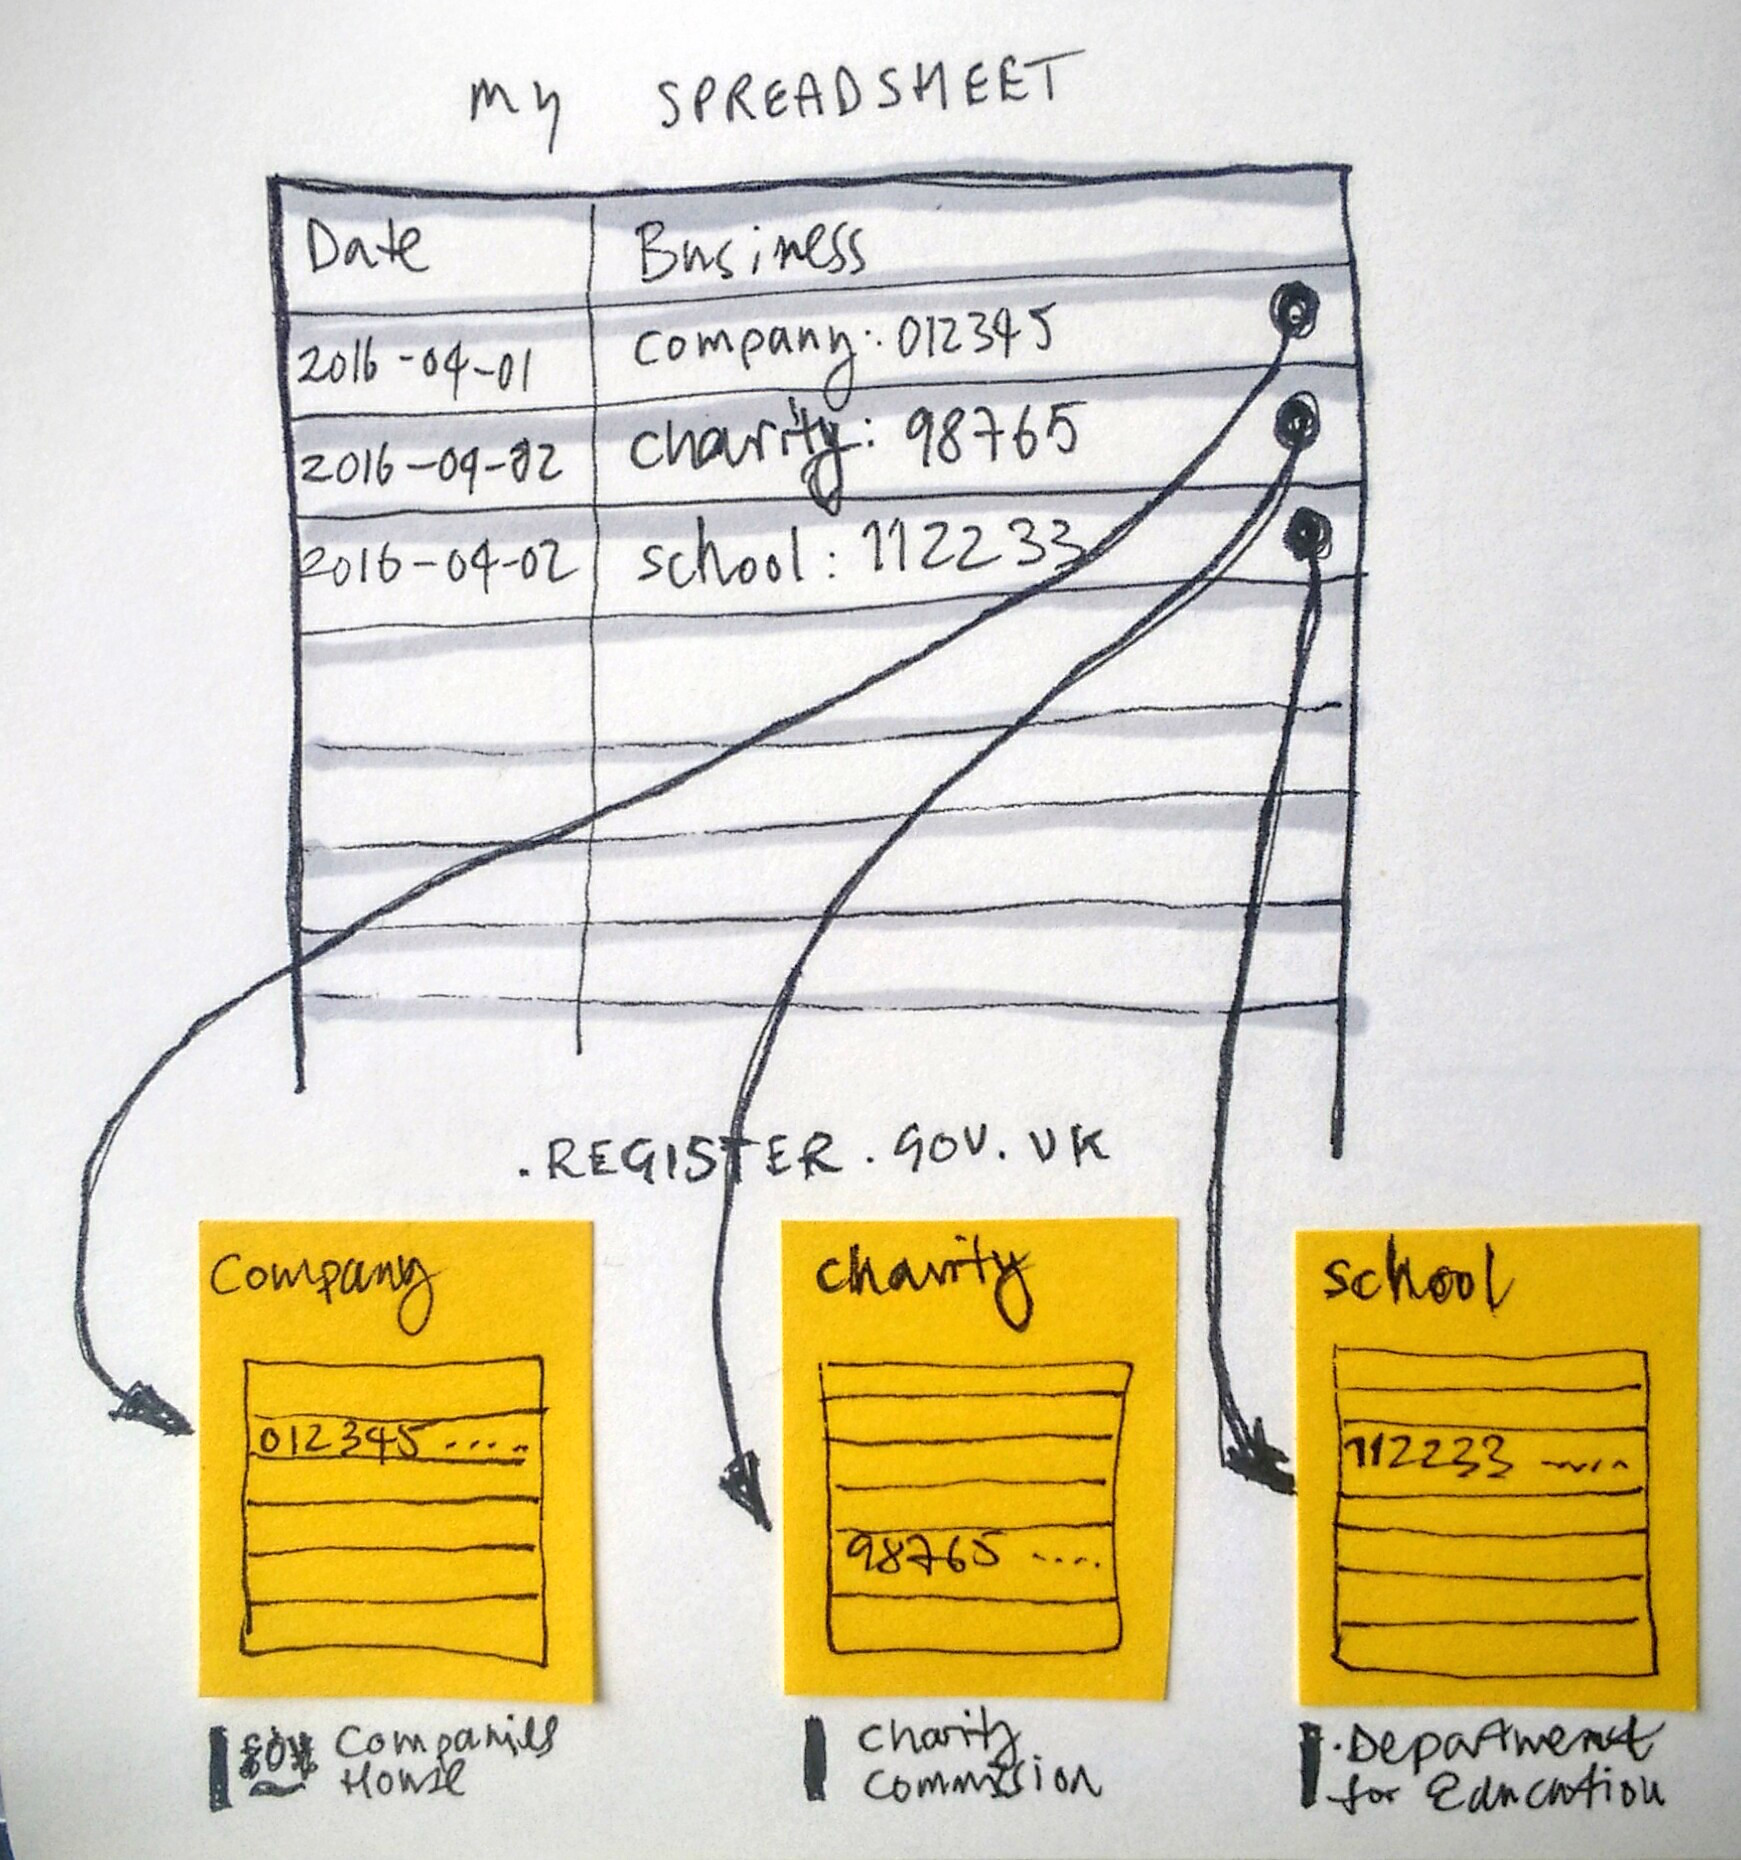 my SPREADSHEET
Date Business
2016-04-01 company: 012345
2016-04-02 charity: 98765
2016-04-02 school: 112233
.REGISTER.GOV.UK
Company charity school
012345 .....
112233 .....
98765 ....
Companies House
Charity Commission
Department for Education